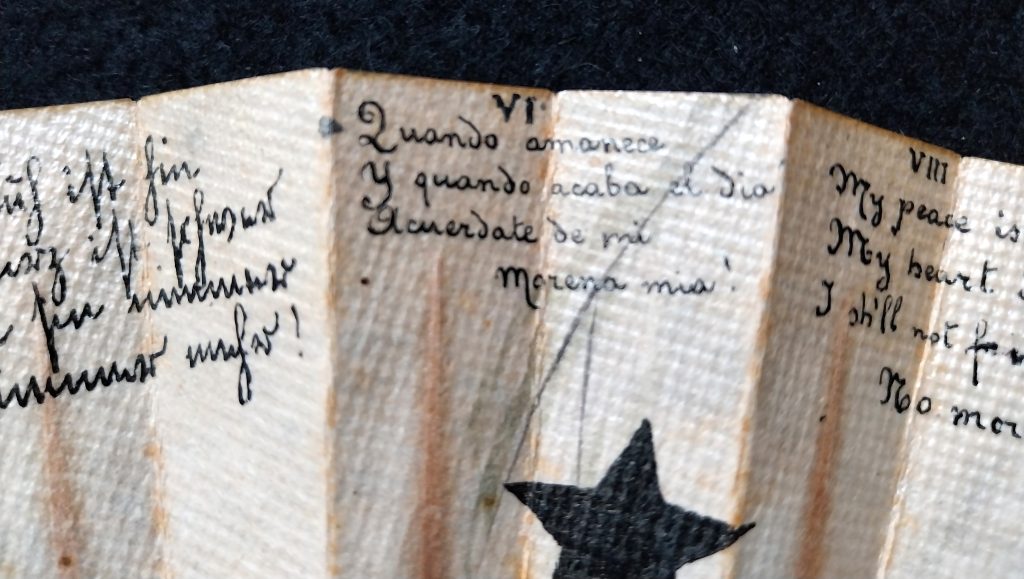 uh ist hin.
erz ist schwer
sie nimmer
nimmer mehr!
VI.
Quando amanece
Y quando acaba el dia
Acuerdate de mi
Morena mia!
VIII
My peace is
My heart
I still not
No mor